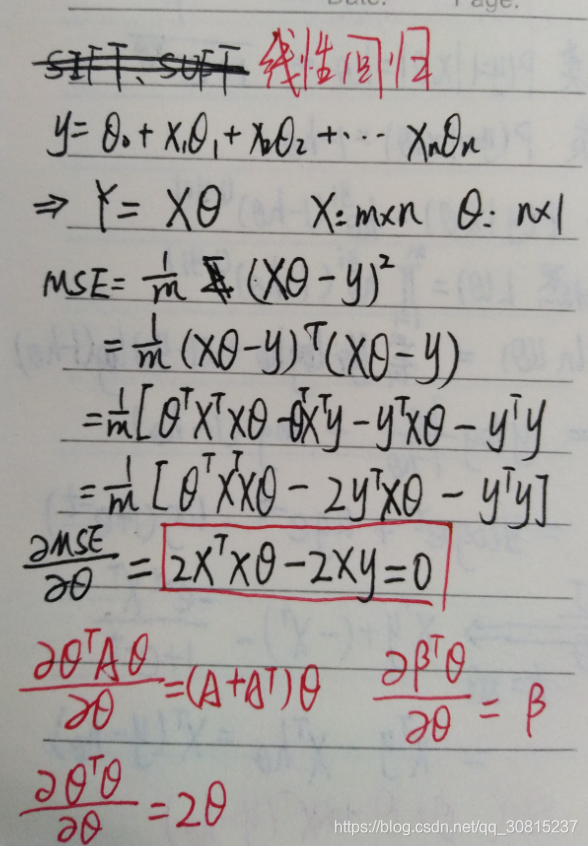 Date. Page.
SIFT、SUFT 线性回归
y = θ₀ + x₁θ₁ + x₂θ₂ + ⋯ xₙθₙ
⇒ Y = Xθ X: m×n θ: n×1
MSE = 1/m Σ (Xθ − y)²
= 1/m (Xθ − y)ᵀ(Xθ − y)
= 1/m [θᵀXᵀXθ − θᵀXᵀy − yᵀXθ − yᵀy
= 1/m [θᵀXᵀXθ − 2yᵀXθ − yᵀy]
∂MSE/∂θ = 2XᵀXθ − 2Xy = 0
∂θᵀAθ/∂θ = (A + Aᵀ)θ ∂βᵀθ/∂θ = β
∂θᵀθ/∂θ = 2θ
https://blog.csdn.net/qq_30815237